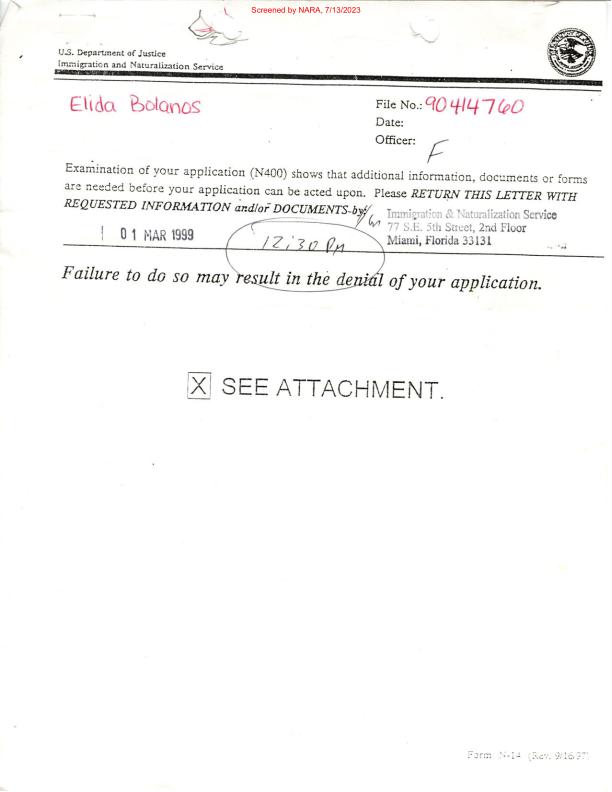 Screened by NARA, 7/13/2023
U.S. Department of Justice
Immigration and Naturalization Service
Elida Bolanos
File No.: 90414760
Date:
Officer: F
Examination of your application (N400) shows that additional information, documents or forms
are needed before your application can be acted upon. Please RETURN THIS LETTER WITH
REQUESTED INFORMATION and/or DOCUMENTS by
Immigration & Naturalization Service
77 S.E. 5th Street, 2nd Floor
Miami, Florida 33131
01 MAR 1999
12:30 PM
Failure to do so may result in the denial of your application.
X SEE ATTACHMENT.
Form N-14 (Rev. 9/16/97)